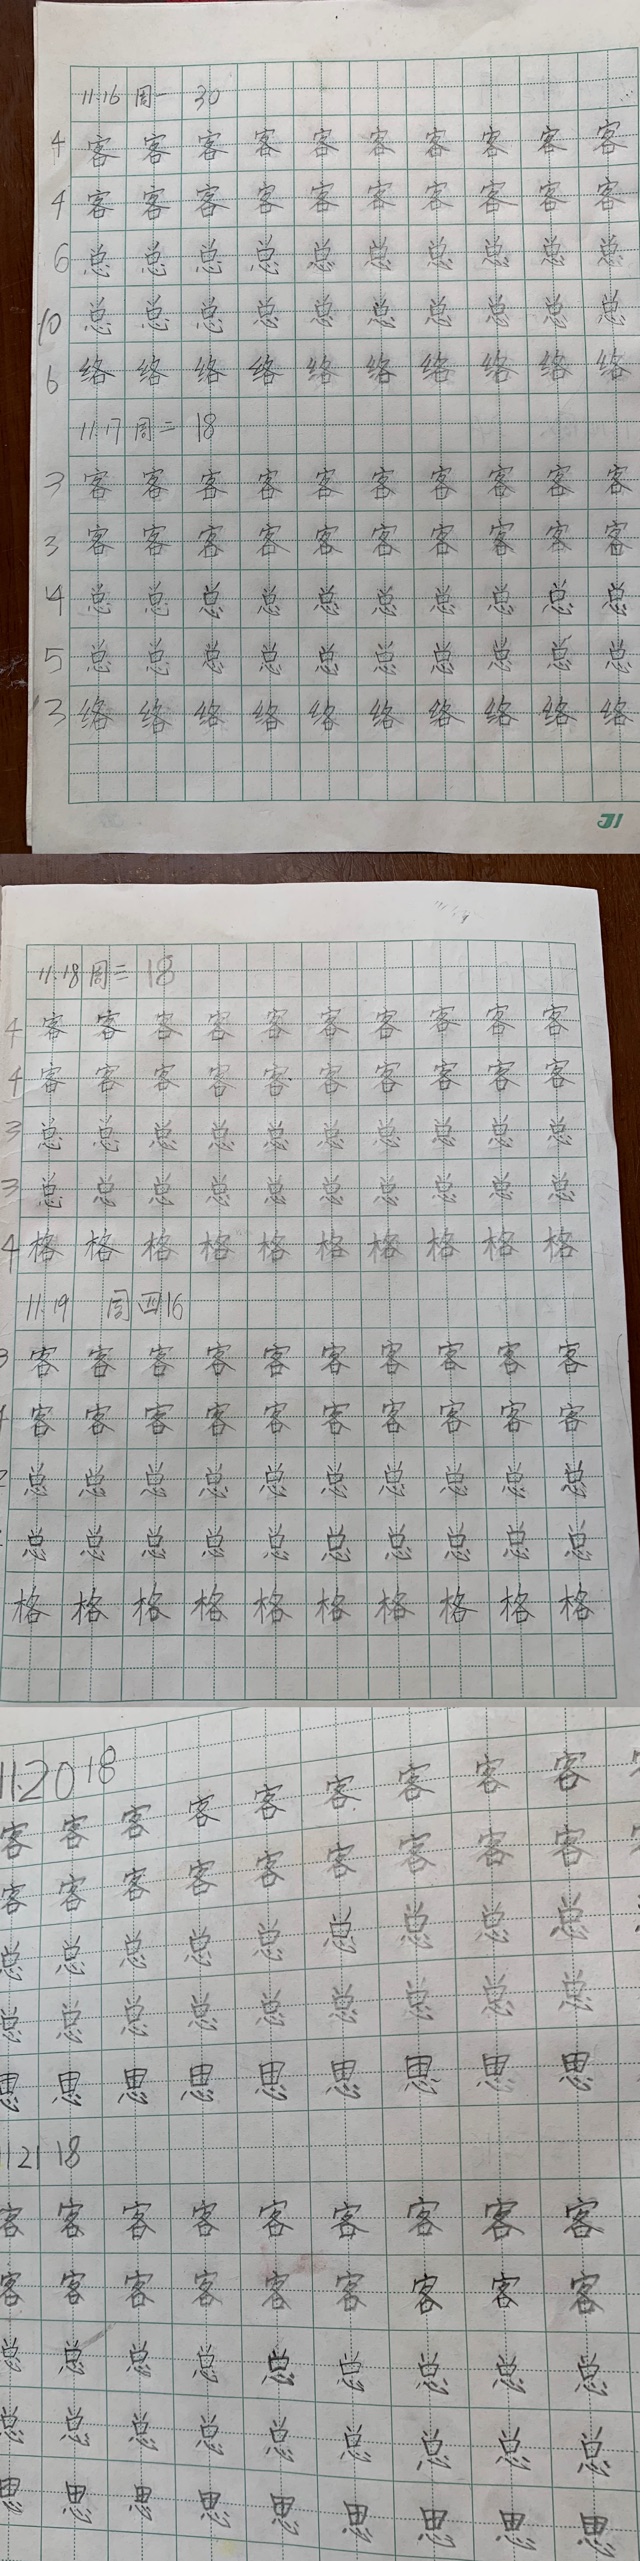 11.16 周一 30
4 客客客客客客客客客客
4 客客客客客客客客客客
6 总总总总总总总总总总
10 总总总总总总总总总总
6 络络络络络络络络络络
11.17 周二 18
3 客客客客客客客客客客
3 客客客客客客客客客客
4 总总总总总总总总总总
5 总总总总总总总总总总
3 络络络络络络络络络络
31
11.18 周三 18
4 客客客客客客客客客客
4 客客客客客客客客客客
3 总总总总总总总总总总
3 总总总总总总总总总总
4 格格格格格格格格格格
11.19 周四 16
3 客客客客客客客客客客
客客客客客客客客客客
总总总总总总总总总总
总总总总总总总总总总
格格格格格格格格格格
11.20 18
客客客客客客客客客
客客客客客客客客客
总总总总总总总总总
总总总总总总总总总
思思思思思思思思思
11 21 18
客客客客客客客客客
客客客客客客客客客
总总总总总总总总总
总总总总总总总总总
思思思思思思思思思